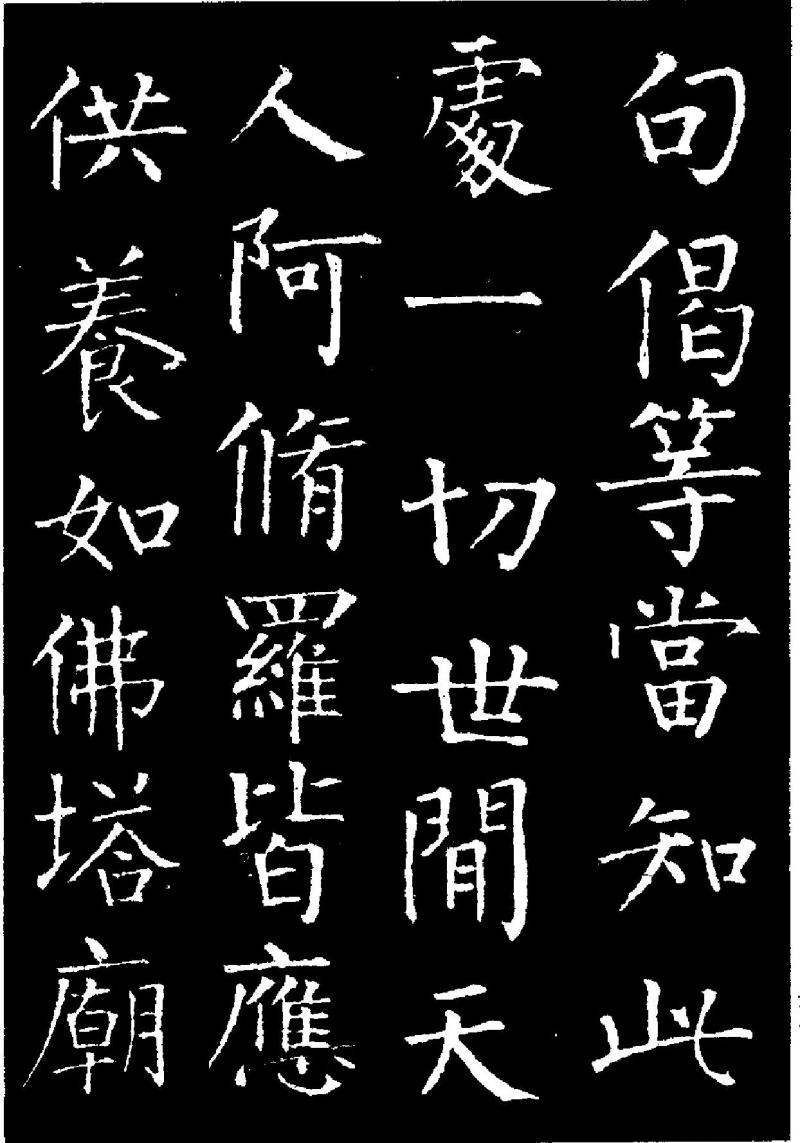 句偈等當知此
處一切世閒天
人阿脩羅皆應
供養如佛塔廟